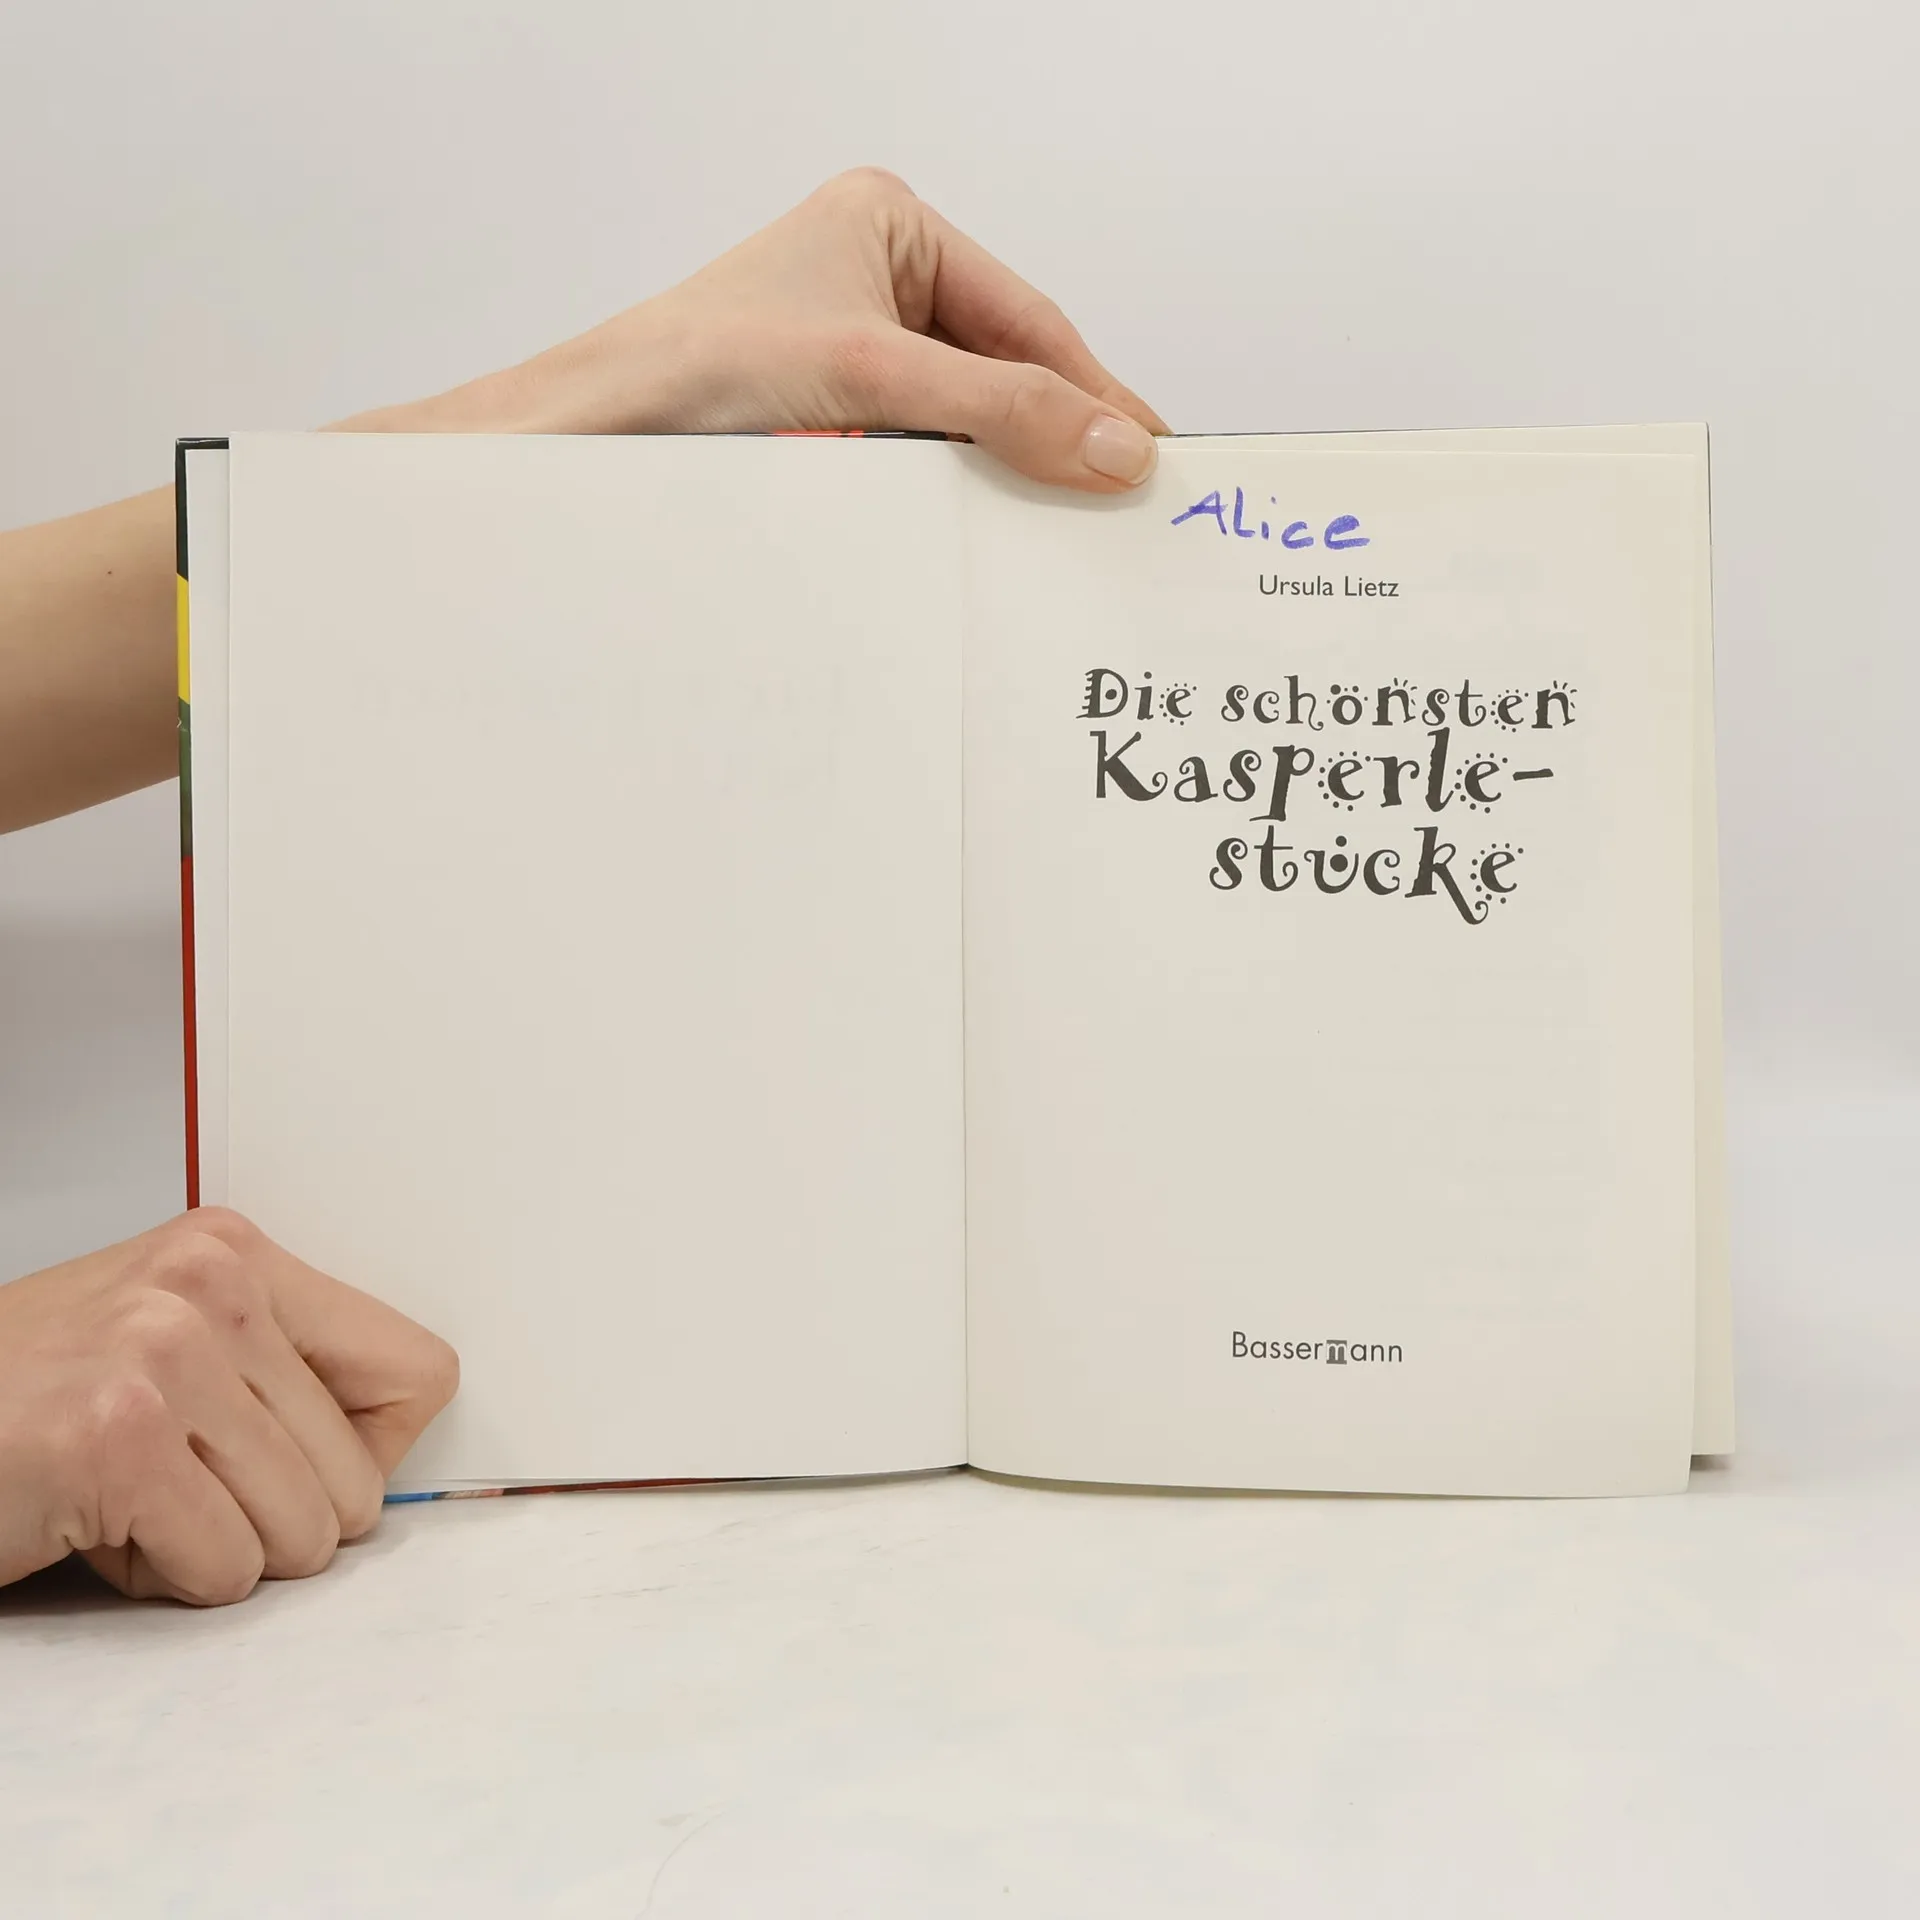 Alice
Ursula Lietz
Die schönsten
Kasperle-
stücke
Bassermann